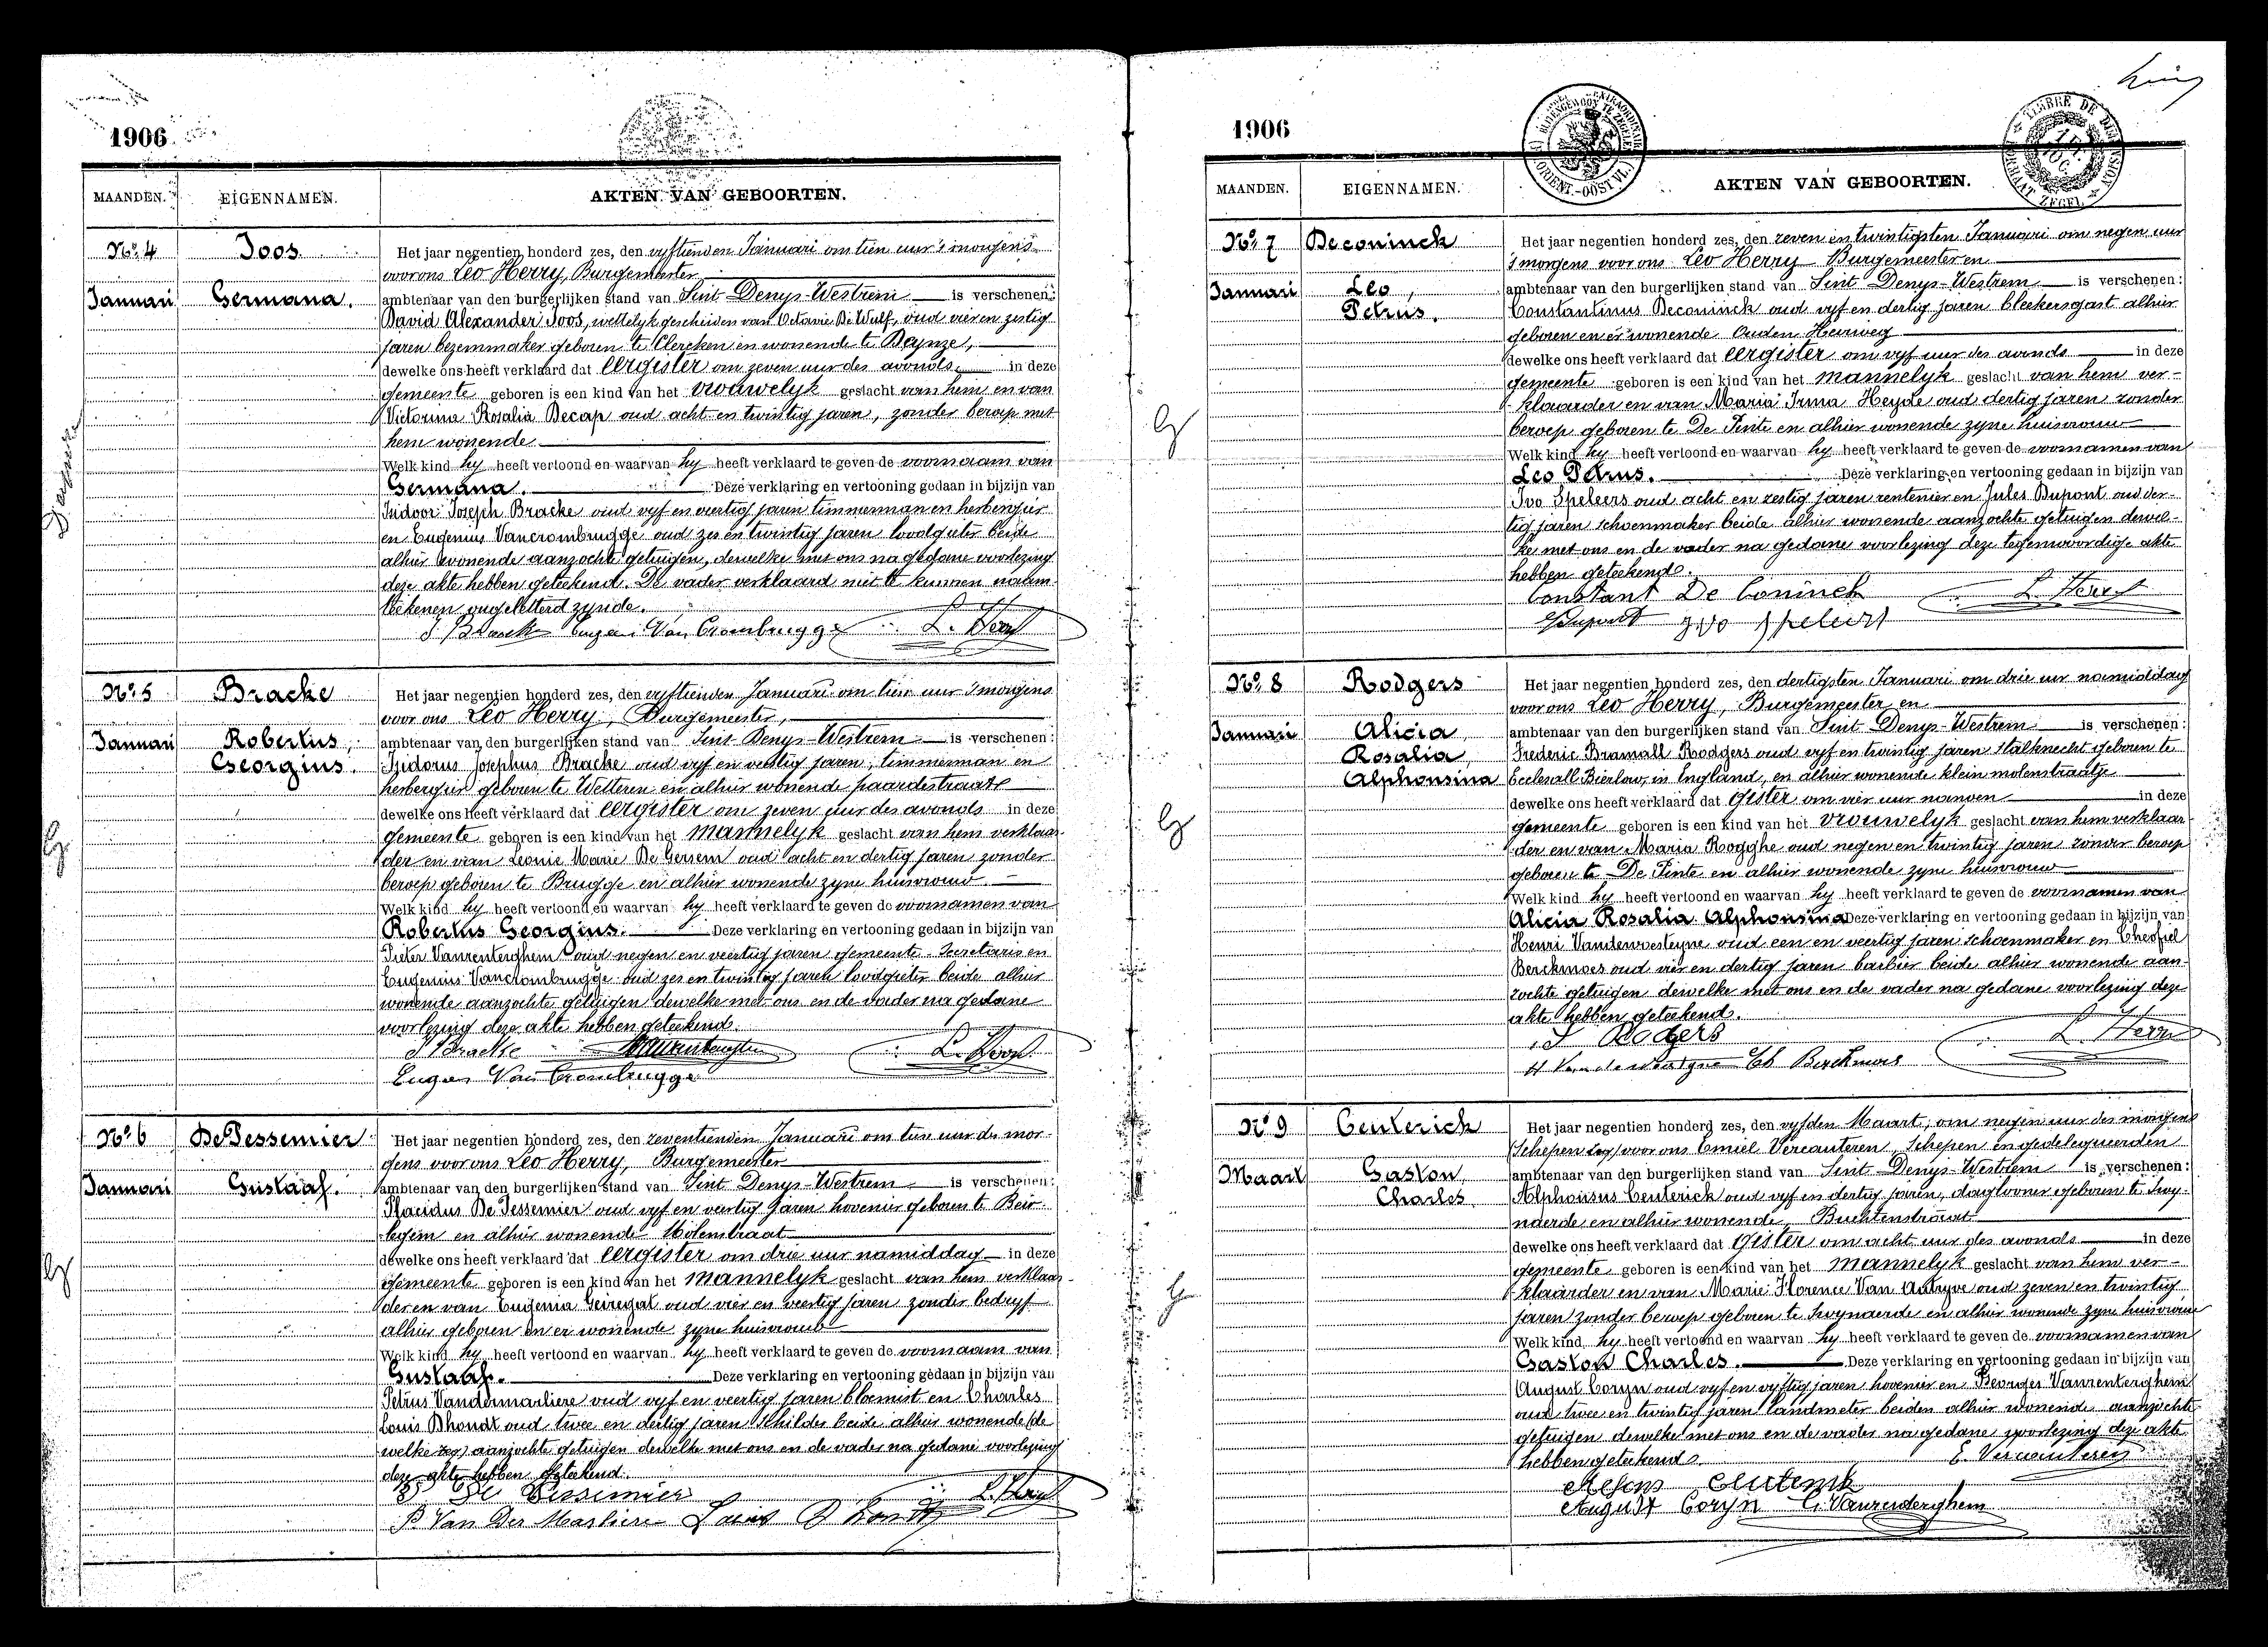 1906
MAANDEN. EIGENNAMEN. AKTEN VAN GEBOORTEN.
No. 4 Joos
Januari Germana.
Het jaar negentien honderd zes, den vyftienden Januari om tien uur 's morgens
voor ons Leo Herry, Burgemeester
ambtenaar van den burgerlijken stand van Sint Denys-Westrem is verschenen:
David Alexander Joos, wettelyk gescheiden van Octavie De Wulf, oud vier en zestig
jaren bezemmaker geboren te Clercken en wonende te Deynze,
dewelke ons heeft verklaard dat eergister om zeven uur des avonds in deze
gemeente geboren is een kind van het vrouwelyk geslacht van hem en van
Victorina Rosalia Decap oud acht en twintig jaren, zonder beroep met
hem wonende
Welk kind hy heeft vertoond en waarvan hy heeft verklaard te geven de voornaam van
Germana. Deze verklaring en vertooning gedaan in bijzijn van
Isidoor Joseph Bracke oud vyf en veertig jaren timmerman en herbergier
en Eugenius Vancrombrugge oud zes en twintig jaren loodgieter beide
alhier wonende aanzochte getuigen, dewelke met ons na gedane voorlezing
deze akte hebben geteekend. De vader verklaard niet te kunnen naam
teekenen ongeletterd zynde.
J Bracke Eugen Van Crombrugge L. Herry
No. 5 Bracke
Januari Robertus,
Georgius.
Het jaar negentien honderd zes, den vyftienden Januari om tien uur 's morgens
voor ons Leo Herry, Burgemeester,
ambtenaar van den burgerlijken stand van Sint Denys-Westrem is verschenen:
Isidorus Josephus Bracke oud vyf en veertig jaren, timmerman en
herbergier geboren te Wetteren en alhier wonende paardestraat
dewelke ons heeft verklaard dat eergister om zeven uur des avonds in deze
gemeente geboren is een kind van het mannelyk geslacht van hem verklaar-
der en van Leonie Marie De Gersem oud acht en dertig jaren zonder
beroep geboren te Brugge en alhier wonende zyne huisvrouw
Welk kind hy heeft vertoond en waarvan hy heeft verklaard te geven de voornamen van
Robertus Georgius. Deze verklaring en vertooning gedaan in bijzijn van
Pieter Vanrenterghem oud negen en veertig jaren gemeente-secretaris en
Eugenius Vancrombrugge oud zes en twintig jaren loodgieter beide alhier
wonende aanzochte getuigen dewelke met ons en de vader na gedane
voorlezing deze akte hebben geteekend.
J Bracke L. Herry
Eugen Van Crombrugge
No. 6 De Tessemier
Januari Gustaaf.
Het jaar negentien honderd zes, den zeventienden Januari om tien uur des mor-
gens voor ons Leo Herry, Burgemeester
ambtenaar van den burgerlijken stand van Sint Denys-Westrem is verschenen:
Placidus De Tessemier oud vyf en veertig jaren hovenier geboren te Beir-
legem en alhier wonende Molenstraat
dewelke ons heeft verklaard dat eergister om drie uur namiddag in deze
gemeente geboren is een kind van het mannelyk geslacht van hem verklaar-
der en van Eugenia Geiregat oud vier en veertig jaren zonder bedryf
alhier geboren en er wonende zyne huisvrouw
Welk kind hy heeft vertoond en waarvan hy heeft verklaard te geven de voornaam van
Gustaaf. Deze verklaring en vertooning gedaan in bijzijn van
Petrus Vandermarliere oud vyf en veertig jaren bloemist en Charles
Louis Dhondt oud twee en dertig jaren schilder beide alhier wonende (de
welke zeg) aanzochte getuigen dewelke met ons en de vader na gedane voorlezing
deze akte hebben geteekend.
De Tessemier L. Herry
P Van Der Marliere Louis D'hondt
1906
MAANDEN. EIGENNAMEN. AKTEN VAN GEBOORTEN.
No. 7 Deconinck
Januari Leo,
Petrus.
Het jaar negentien honderd zes, den zeven en twintigsten Januari om negen uur
's morgens voor ons Leo Herry Burgemeester en
ambtenaar van den burgerlijken stand van Sint Denys-Westrem is verschenen:
Constantinus Deconinck oud vyf en dertig jaren bleekersgast alhier
geboren en er wonende Ouden Heirweg
dewelke ons heeft verklaard dat eergister om vyf uur des avonds in deze
gemeente geboren is een kind van het mannelyk geslacht van hem ver-
klaarder en van Maria Irma Heyde oud dertig jaren zonder
beroep geboren te De Pinte en alhier wonende zyne huisvrouw
Welk kind hy heeft vertoond en waarvan hy heeft verklaard te geven de voornamen van
Leo Petrus. Deze verklaring en vertooning gedaan in bijzijn van
Ivo Speleers oud acht en zestig jaren rentenier en Jules Dupont oud der-
tig jaren schoenmaker beide alhier wonende aanzochte getuigen dewel-
ke met ons en de vader na gedane voorlezing deze tegenwoordige akte
hebben geteekend.
Constant De Coninck L. Herry
Dupont Ivo Speleers
No. 8 Rodgers
Januari Alicia,
Rosalia,
Alphonsina
Het jaar negentien honderd zes, den dertigsten Januari om drie uur namiddag
voor ons Leo Herry, Burgemeester en
ambtenaar van den burgerlijken stand van Sint Denys-Westrem is verschenen:
Frederic Bramall Rodgers oud vyf en twintig jaren stalknecht geboren te
Ecclesall Bierlow, in England, en alhier wonende klein molenstraatje
dewelke ons heeft verklaard dat gister om vier uur nanoen in deze
gemeente geboren is een kind van het vrouwelyk geslacht van hem verklaar-
der en van Maria Rogghe oud negen en twintig jaren zonder beroep
geboren te De Pinte en alhier wonende zyne huisvrouw
Welk kind hy heeft vertoond en waarvan hy heeft verklaard te geven de voornamen van
Alicia Rosalia Alphonsina Deze verklaring en vertooning gedaan in bijzijn van
Henri Vandewoesteyne oud een en veertig jaren schoenmaker en Theofiel
Berckmoes oud vier en dertig jaren barbier beide alhier wonende aan-
zochte getuigen dewelke met ons en de vader na gedane voorlezing deze
akte hebben geteekend.
Rodgers L Herry
H Vandewoestyne Th Berckmoes
No. 9 Ceuterick
Maart Gaston,
Charles.
Het jaar negentien honderd zes, den vyfden Maart, om negen uur des morgens
(Schepen zeg) voor ons Emiel Vercauteren, Schepen en gedelegueerden
ambtenaar van den burgerlijken stand van Sint Denys-Westrem is verschenen:
Alphonsus Ceuterick oud vyf en dertig jaren, daglooner geboren te Swy-
naerde en alhier wonende Buchtenstraat
dewelke ons heeft verklaard dat gister om acht uur des avonds in deze
gemeente geboren is een kind van het mannelyk geslacht van hem ver-
klaarder en van Marie Florence Van Autryve oud zeven en twintig
jaren zonder beroep geboren te Swynaerde en alhier wonende zyne huisvrouw
Welk kind hy heeft vertoond en waarvan hy heeft verklaard te geven de voornamen van
Gaston Charles. Deze verklaring en vertooning gedaan in bijzijn van
August Coryn oud vyf en vyftig jaren hovenier en Georges Vanrenterghem
oud twee en twintig jaren landmeter beiden alhier wonende aanzochte
getuigen dewelke met ons en de vader na gedane voorlezing deze akte
hebben geteekend. E. Vercauteren
Alfons Ceuterick
August Coryn G. Vanrenterghem